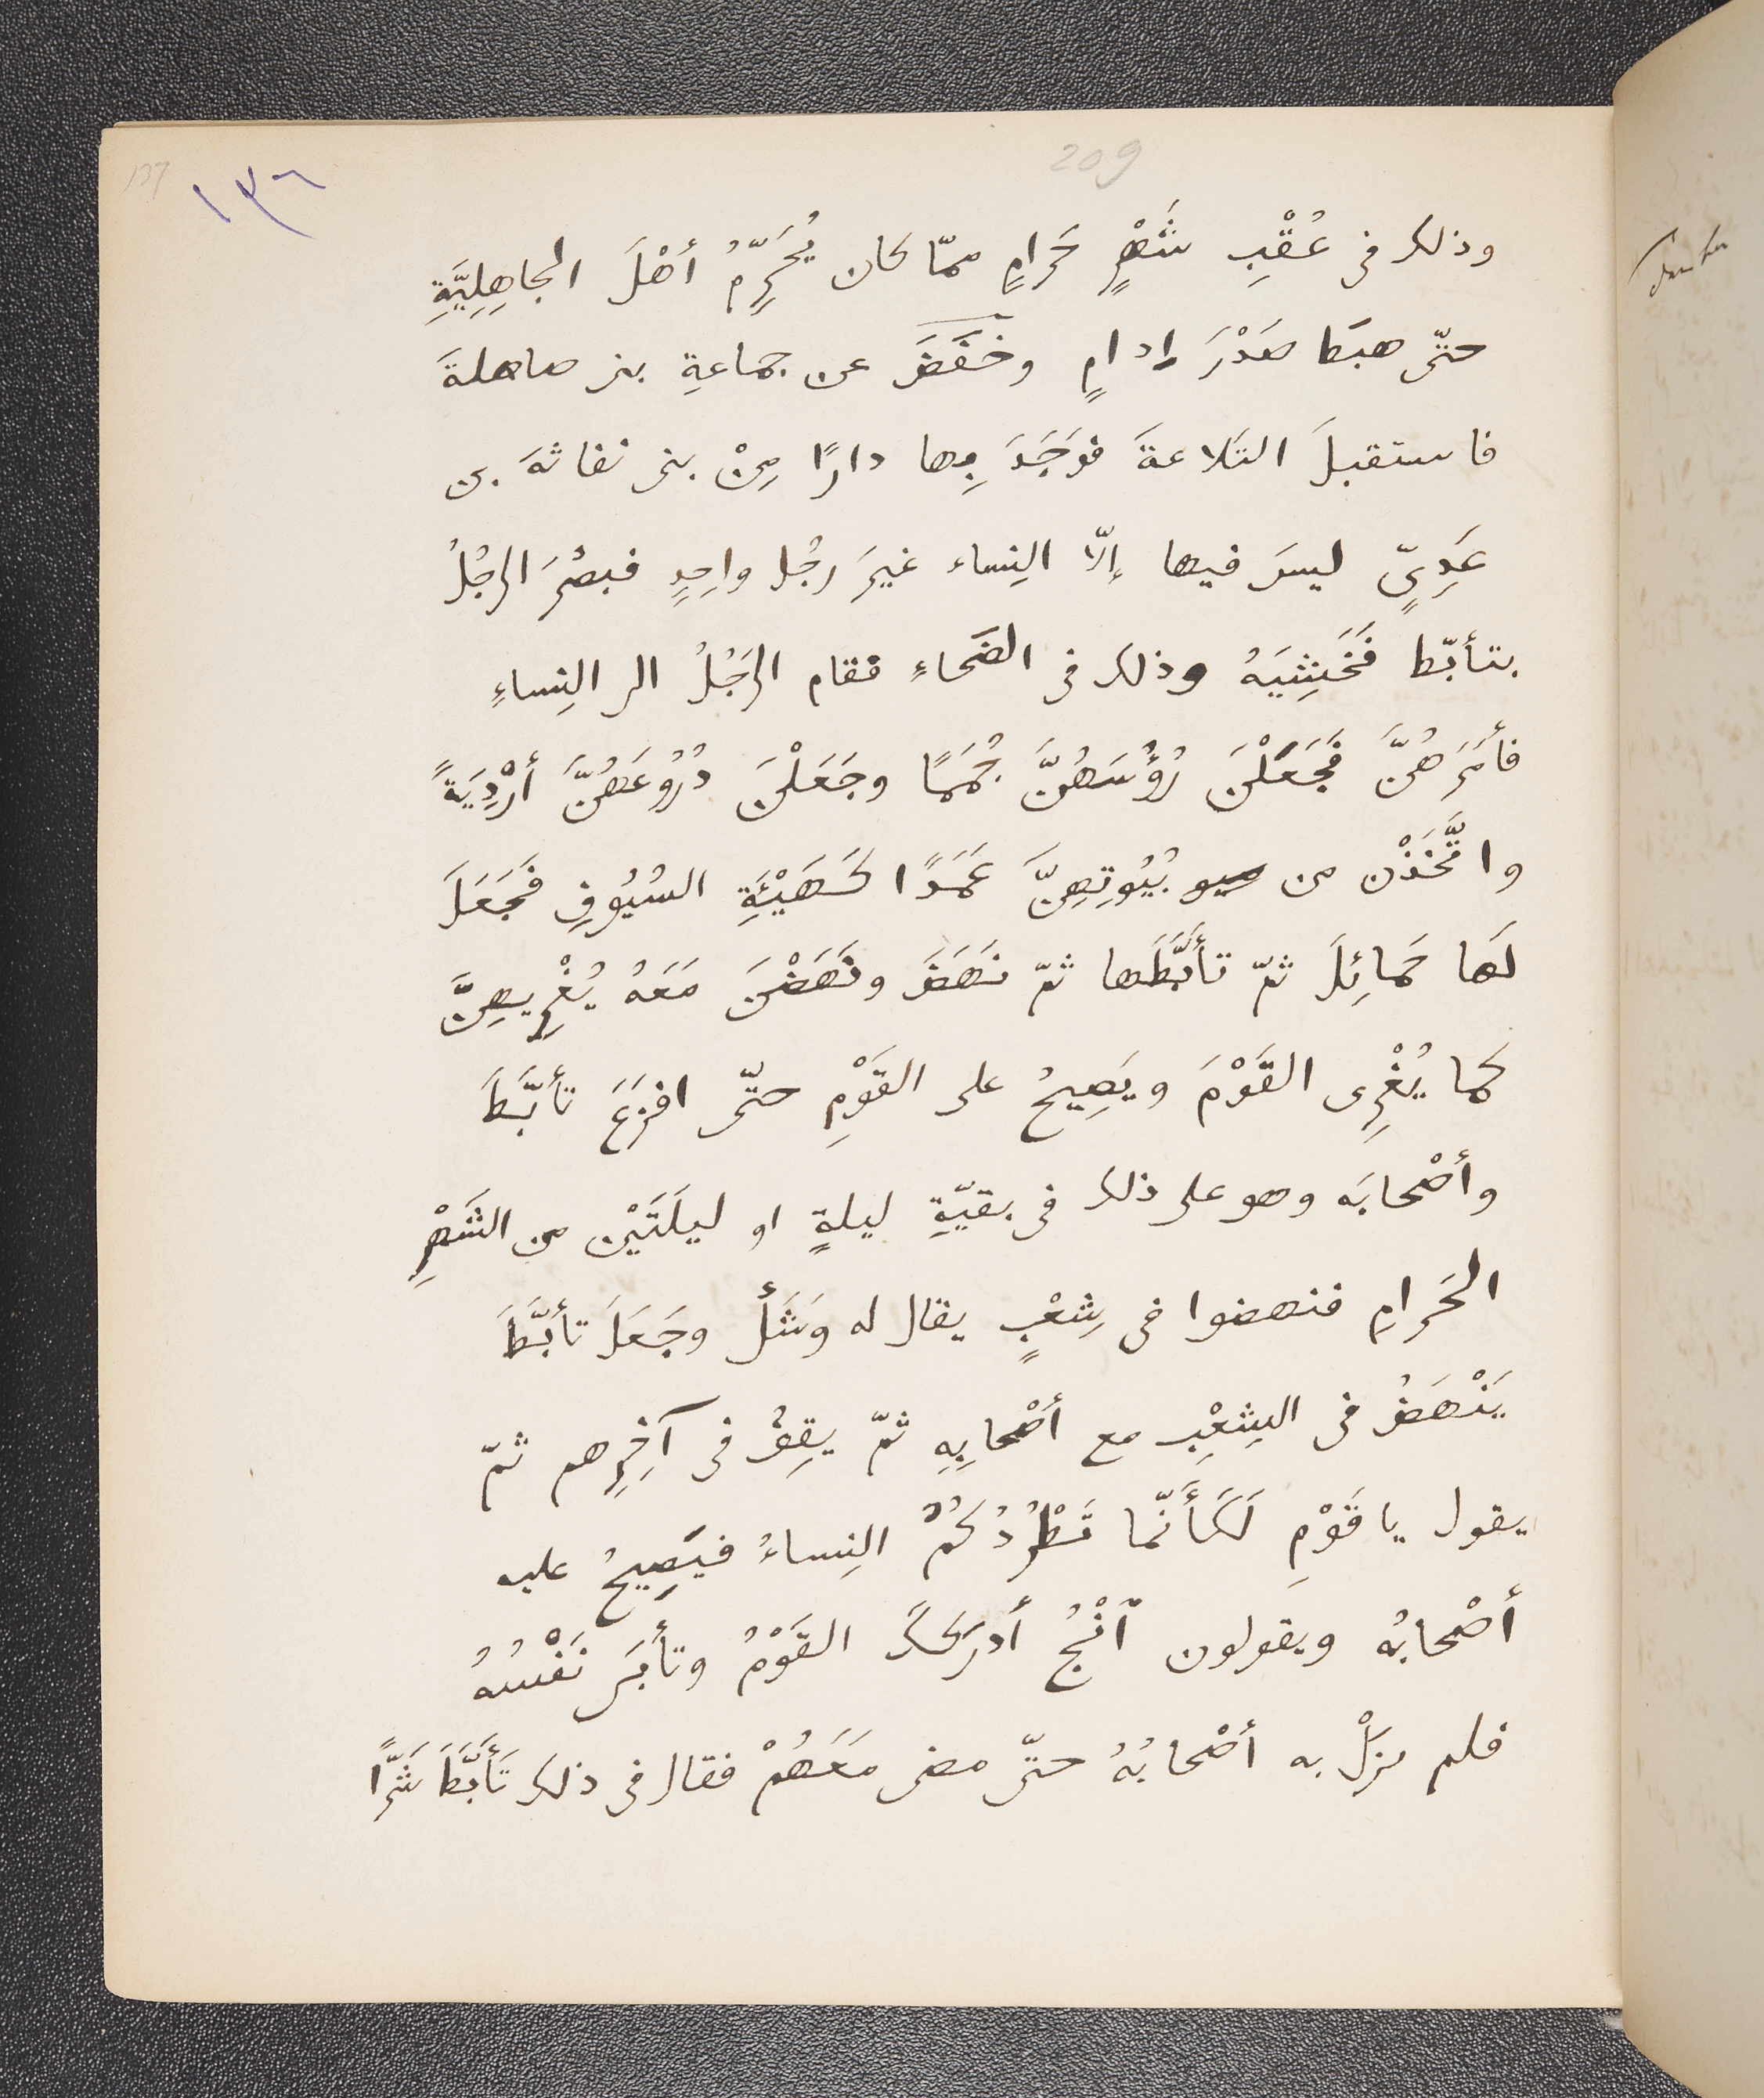 209
137
١٣٦
وذلك فى عُقْبِ شَهْرٍ حَرامٍ ممّا كان يُحَرِّمُ أهْلَ الجاهِلِيَّةِ
حتّى هبَطا صَدْرَ إدامٍ وخَفَّضَ عن جماعةِ بنى صاهلةَ
فاستقبلَ التَلاعةَ فوَجَدَ بِها دارًا مِنْ بنى نفاثةَ بن
عَدِىٍّ ليسَ فيها إلّا النِساء غيرَ رجُل واحِدٍ فبصُرَ الرجُلُ
بتأبّط فَخَشِيَهُ وذلك فى الضَحاءِ فقام الرَجُلُ الى النِساءِ
فأمَرَهُنَّ فجَعَلْنَ رُؤُسَهُنَّ جُمَمًا وجَعَلْنَ دُرُوعَهُنَّ أرْدِيَةً
واتَّخَذْن من بُيُوتِهِنَّ عَمَدًا كَهَيْئَةِ السُيُوفِ فجَعَلَ
لَها حَمائِلَ ثمّ تأبَّطَها ثمّ نَهَضَ ونَهَضْنَ مَعَهُ يُغْرِيهِنَّ
كما يُغْرِى القَوْمَ ويَصِيحُ على القَوْمِ حتّى افزَعَ تأبَّطَ
وأصْحابَه وهو على ذلك فى بقيّةِ ليلةٍ او ليلَتَيْنِ من الشَهْرِ
الحَرامِ فنهضوا فى شِعْبٍ يقال له وَشَلٌ وجَعَلَ تأبَّطَ
يَنْهَضُ فى الشِعْبِ مع أصْحابِهِ ثمّ يقِفُ فى آخِرِهم ثمّ
يقول يا قَوْمِ لَكَأَنّما تَطْرُدُكُمُ النِساءُ فيَصِيحُ عليه
أصْحابُه ويقولون ٱنْجُ أدرَكَكَ القَوْمُ وتأبَى نَفْسُهُ
فلم يزَلْ به أصْحابُهُ حتّى مضى مَعَهُمْ فقال فى ذلك تَأَبَّطَ شَرًّا